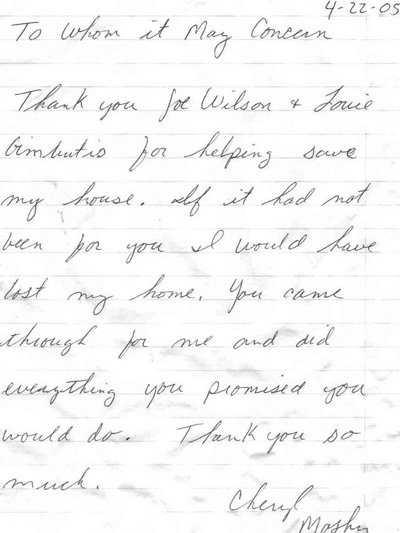 4-22-05
To Whom it May Concern
Thank you Joe Wilson + Louie
Gimbutis for helping save
my house. If it had not
been for you I would have
lost my home. You came
through for me and did
everything you promised you
would do. Thank you so
much.
Cheryl